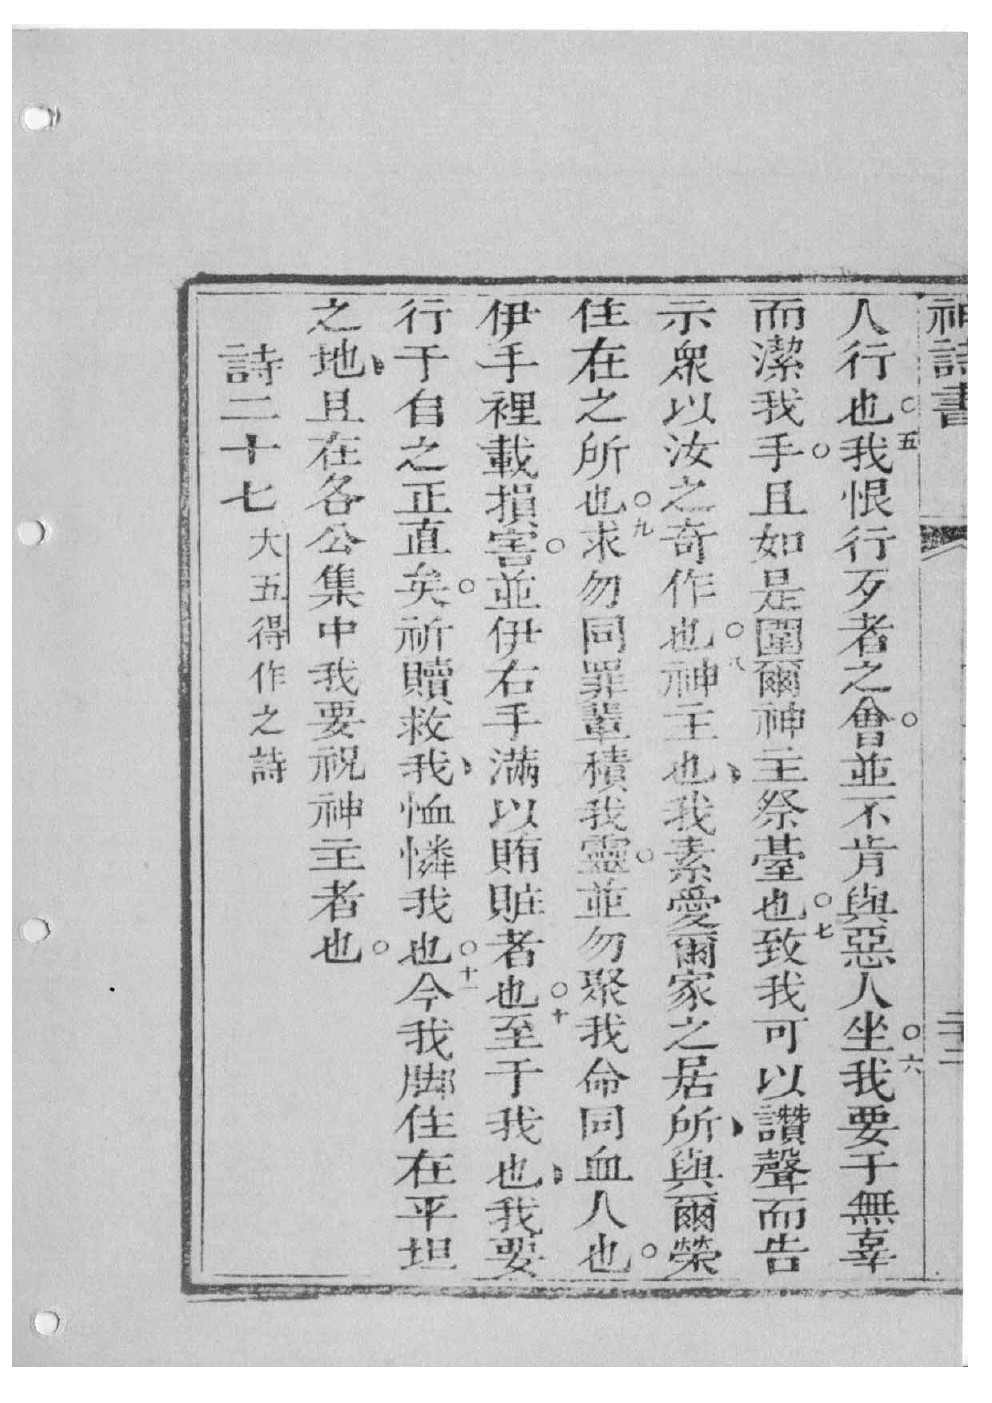 神詩書 二十二
人行也○五我恨行歹者之會○並不肯與惡人坐○六我要于無辜
而潔我手○且如是圍爾神主祭臺也○七致我可以讚聲而告
示衆以汝之奇作也○八神主也我素愛爾家之居所與爾榮
住在之所也○九求勿同罪輩積我靈○並勿聚我命同血人也○
伊手裡載損害○並伊右手滿以賄賍者也○十至于我也我要
行于自之正直矣○祈贖救我恤憐我也○十一今我脚住在平坦
之地且在各公集中我要祝神主者也○
詩二十七 大五得作之詩